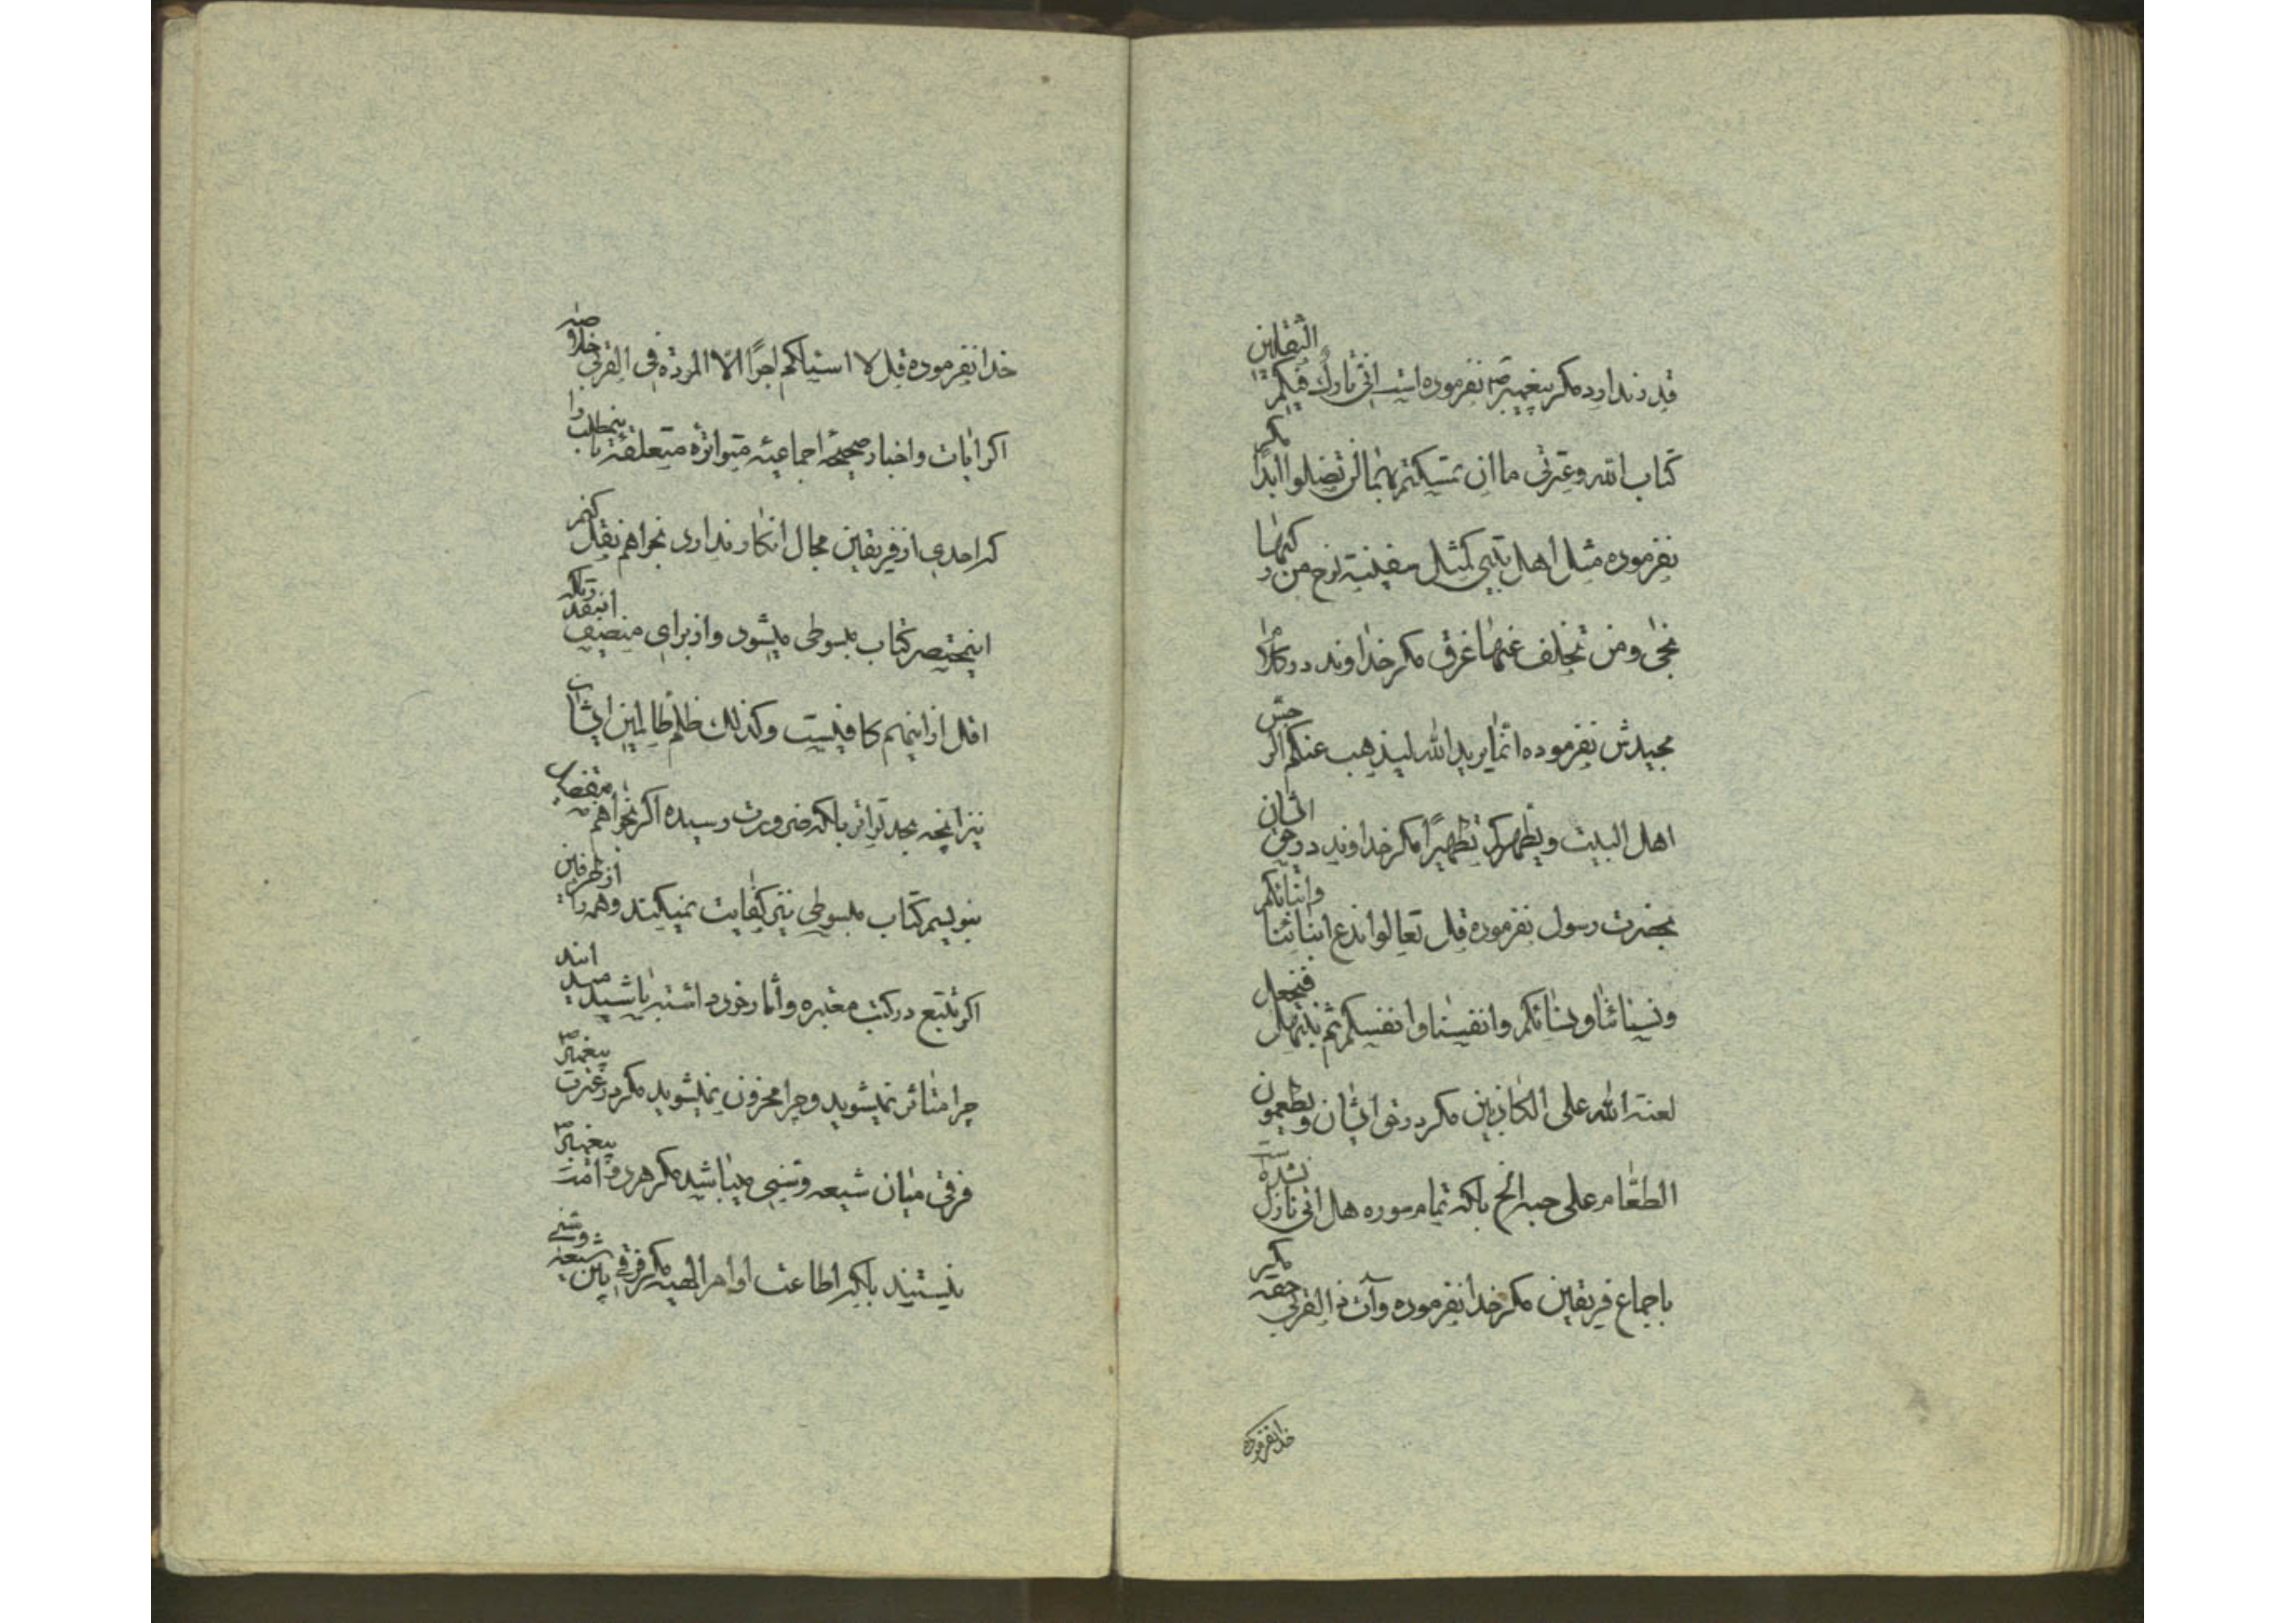 قدر ندارد مکر پیغمبر ص نفرموده است انی تارک فیکم الثقلین
کتاب الله وعترتی ما ان تمسکتم بهما لن تضلوا ابدا مکر
نفرموده مثل اهل بیتی کمثل سفینة نوح من رکبها
نجی ومن تخلف عنها غرق مکر خداوند در کلام
مجیدش نفرموده انما یرید الله لیذهب عنکم الرجس
اهل البیت ویطهرکم تطهیرا مکر خداوند در حق ایشان
بحضرت رسول نفرموده قل تعالوا ندع ابنائنا وابنائکم
ونسائنا ونسائکم وانفسنا وانفسکم ثم نبتهل فنجعل
لعنة الله علی الکاذبین مکر در حق ایشان ویطعمون
الطعام علی حبه الخ بلکه تمام سوره هل اتی نازل نشده
باجماع فریقین مکر خدا نفرموده وآت ذا القربی حقه مکر
خدا نفرموده
خدا نفرموده قل لا اسئلکم اجرا الا المودة فی القربی خلاصه
اکر ایات واخبار صحیحه اجماعیه متواتره متعلقه باینمطلب را
که احدی از فریقین مجال انکار ندارد بخواهم نقل کنم
اینمختصر کتاب مبسوطی میشود واز برای منصف اینقدر بلکه
اقل از اینهم کافیست وکذلک ظلم ظالمین ایشان
نیز آنچه بحد تواتر بلکه ضرورت رسیده اکر بخواهم
بنویسم کتاب مبسوطی نیز کفایت نمیکند وهمه را از طرفین
اکر تتبع در کتب معتبره واثار خود داشته باشید میدانند
چرا متاثر نمیشوید وچرا محزون نمیشوید مکر در عترت پیغمبر ص
فرقی میان شیعه وسنی میباشد مکر هر دو امت پیغمبر ص
نیستند بلکه اطاعت اوامر الهیه مکر فرقی بین شیعه وسنی